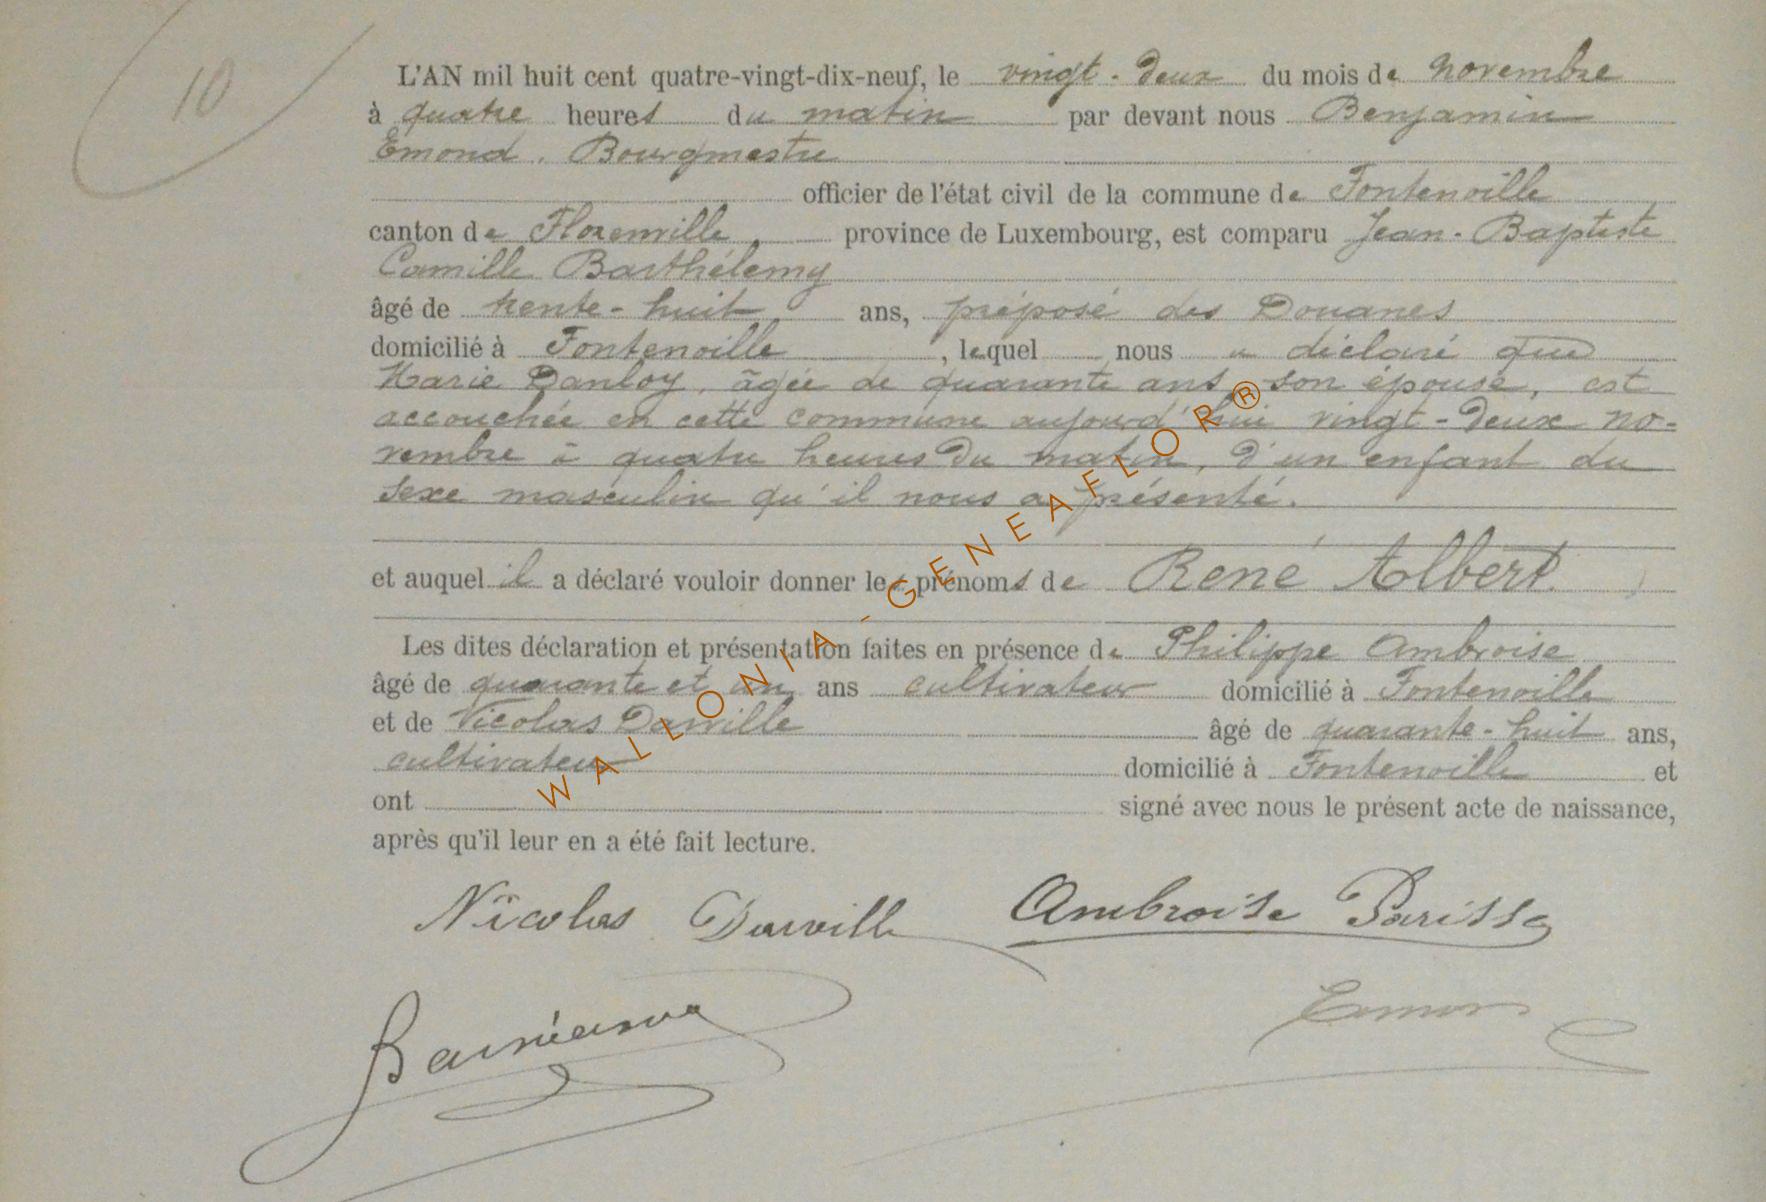 10
L'AN mil huit cent quatre-vingt-dix-neuf, le vingt-deux du mois de novembre
à quatre heures du matin par devant nous Benjamin
Emond, Bourgmestre
officier de l'état civil de la commune de Fontenoille
canton de Florenville, province de Luxembourg, est comparu Jean-Baptiste
Camille Barthélemy
âgé de trente-huit ans, préposé des Douanes
domicilié à Fontenoille, lequel nous a déclaré que
Marie Danloy, âgée de quarante ans, son épouse, est
accouchée en cette commune aujourd'hui vingt-deux no-
vembre à quatre heures du matin, d'un enfant du
sexe masculin qu'il nous a présenté.
et auquel il a déclaré vouloir donner les prénoms de René Albert
Les dites déclaration et présentation faites en présence de Philippe Ambroise
âgé de quarante et un ans cultivateur domicilié à Fontenoille
et de Nicolas Darville âgé de quarante-huit ans,
cultivateur domicilié à Fontenoille et
ont signé avec nous le présent acte de naissance,
après qu'il leur en a été fait lecture.
Nicolas Darville Ambroise
WALLONIA-GENEAFLOR®